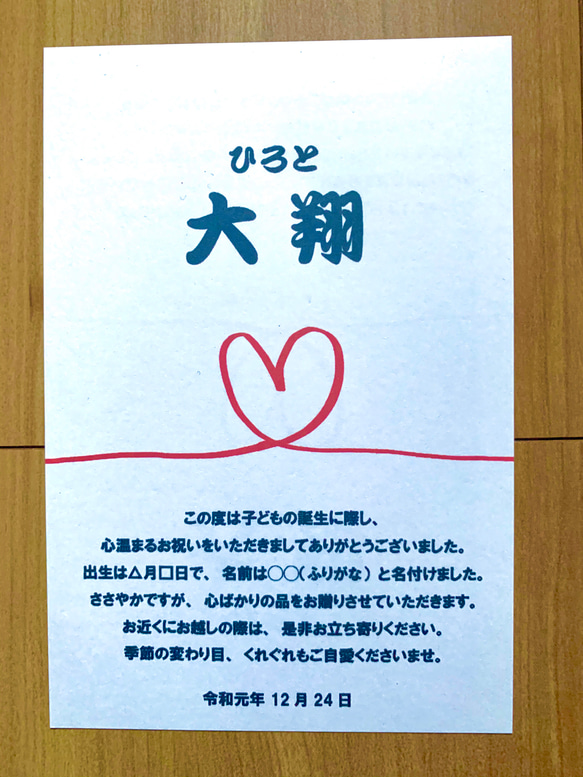 ひろと
大翔
この度は子どもの誕生に際し、
心温まるお祝いをいただきましてありがとうございました。
出生は△月□日で、名前は○○(ふりがな)と名付けました。
ささやかですが、心ばかりの品をお贈りさせていただきます。
お近くにお越しの際は、是非お立ち寄りください。
季節の変わり目、くれぐれもご自愛くださいませ。
令和元年 12月24日